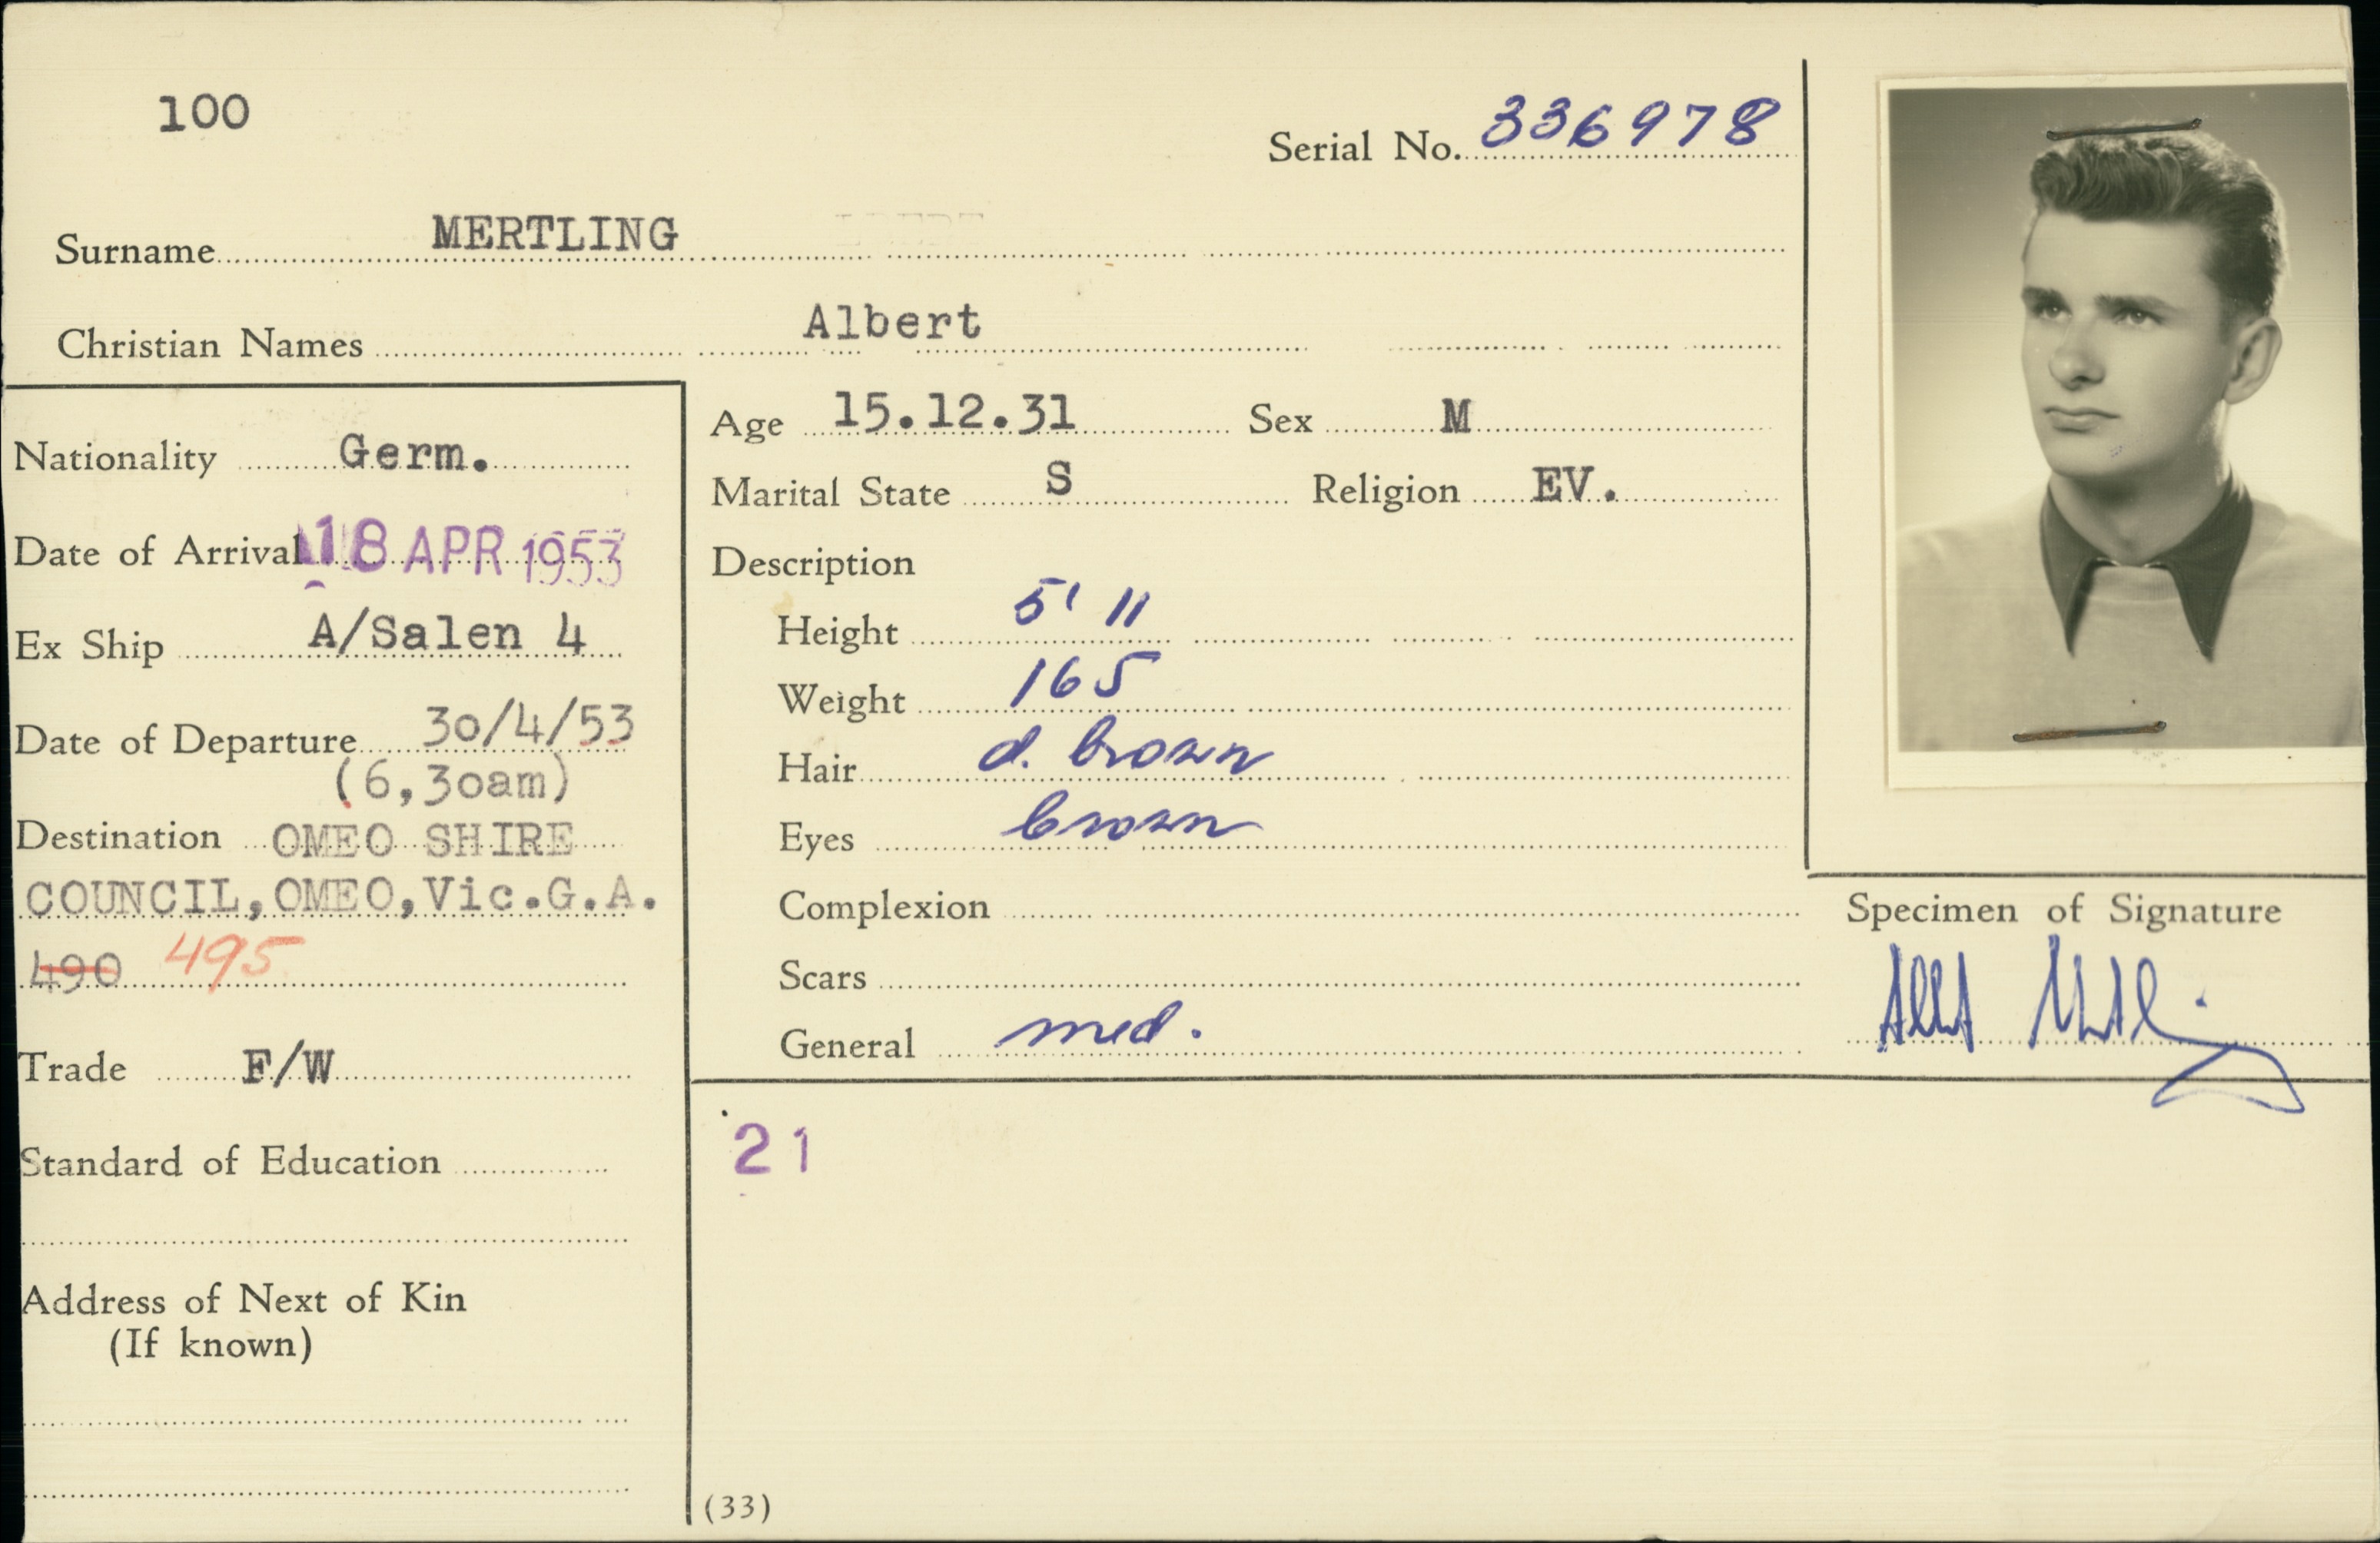 100
Serial No. 336978
Surname MERTLING
Christian Names Albert
Nationality Germ.
Date of Arrival 18 APR 1953
Ex Ship A/Salen 4
Date of Departure 30/4/53
(6,30am)
Destination OMEO SHIRE
COUNCIL,OMEO,Vic.G.A.
490 495
Trade F/W
Standard of Education
Address of Next of Kin
(If known)
Age 15.12.31 Sex M
Marital State S Religion EV.
Description
Height 5' 11
Weight 165
Hair d. brown
Eyes brown
Complexion
Scars
General med.
21
(33)
Specimen of Signature